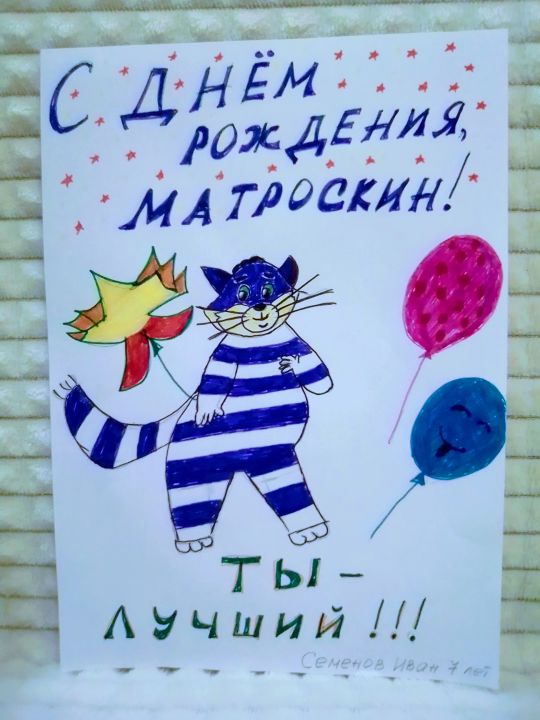 С ДНЁМ
РОЖДЕНИЯ,
МАТРОСКИН!
ТЫ –
ЛУЧШИЙ!!!
Семенов Иван 7 лет